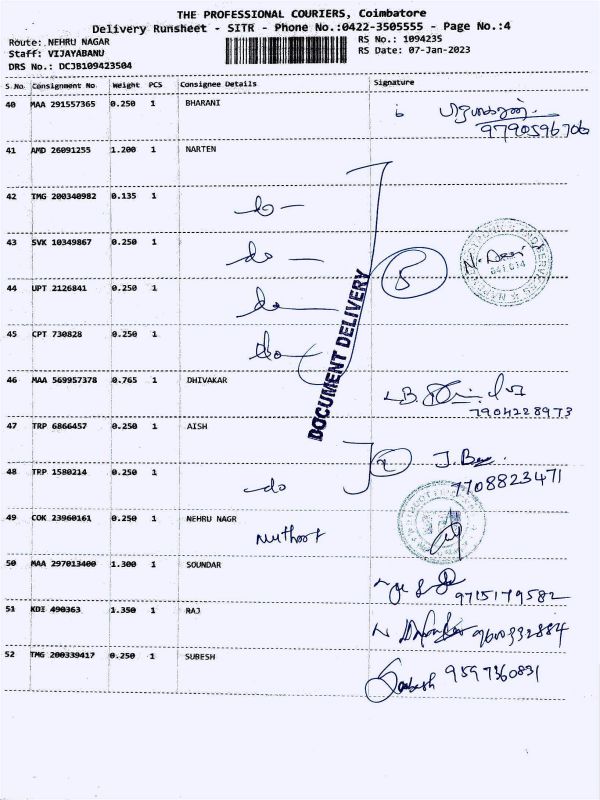 THE PROFESSIONAL COURIERS, Coimbatore
Delivery Runsheet - SITR - Phone No.:0422-3505555 - Page No.:4
Route: NEHRU NAGAR
Staff: VIJAYABANU
DRS No.: DCJB109423504
RS No.: 1094235
RS Date: 07-Jan-2023
S.No. Consignment No. Weight PCS Consignee Details Signature
40 MAA 291557365 0.250 1 BHARANI
9790596706
41 AMD 26091255 1.200 1 NARTEN
42 TMG 200340982 0.135 1 do -
43 SVK 10349867 0.250 1 do - 5
44 UPT 2126841 0.250 1 do
45 CPT 730828 0.250 1 do
DOCUMENT DELIVERY
46 MAA 569957378 0.765 1 DHIVAKAR
7904228973
47 TRP 6866457 0.250 1 AISH
48 TRP 1580214 0.250 1 do 7708823471
49 COK 23960161 0.250 1 NEHRU NAGR
Muthoot
50 MAA 297013400 1.300 1 SOUNDAR
9715179582
51 KDI 490363 1.350 1 RAJ
9600332884
52 TMG 200339417 0.250 1 SUBESH
9597360831